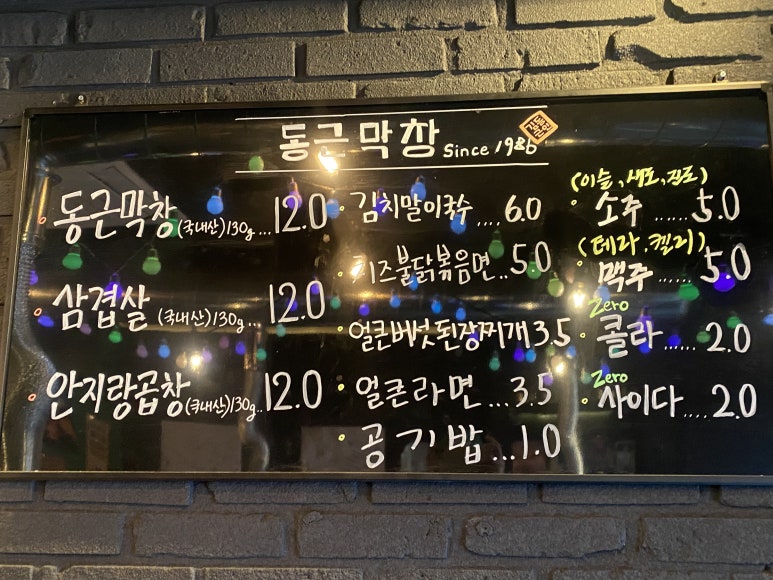 동근막창 Since 1986
동근막창 (국내산) 130g ... 12.0
삼겹살 (국내산) 130g ... 12.0
안지랑곱창 (국내산) 130g.. 12.0
김치말이국수 .... 6.0
치즈불닭볶음면.. 5.0
얼큰버섯된장찌개 3.5
얼큰라면 ... 3.5
공기밥 ... 1.0
(이슬, 새로, 진로)
소주 ...... 5.0
(테라, 켈리)
맥주 ..... 5.0
Zero
콜라 ...... 2.0
Zero
사이다 .... 2.0